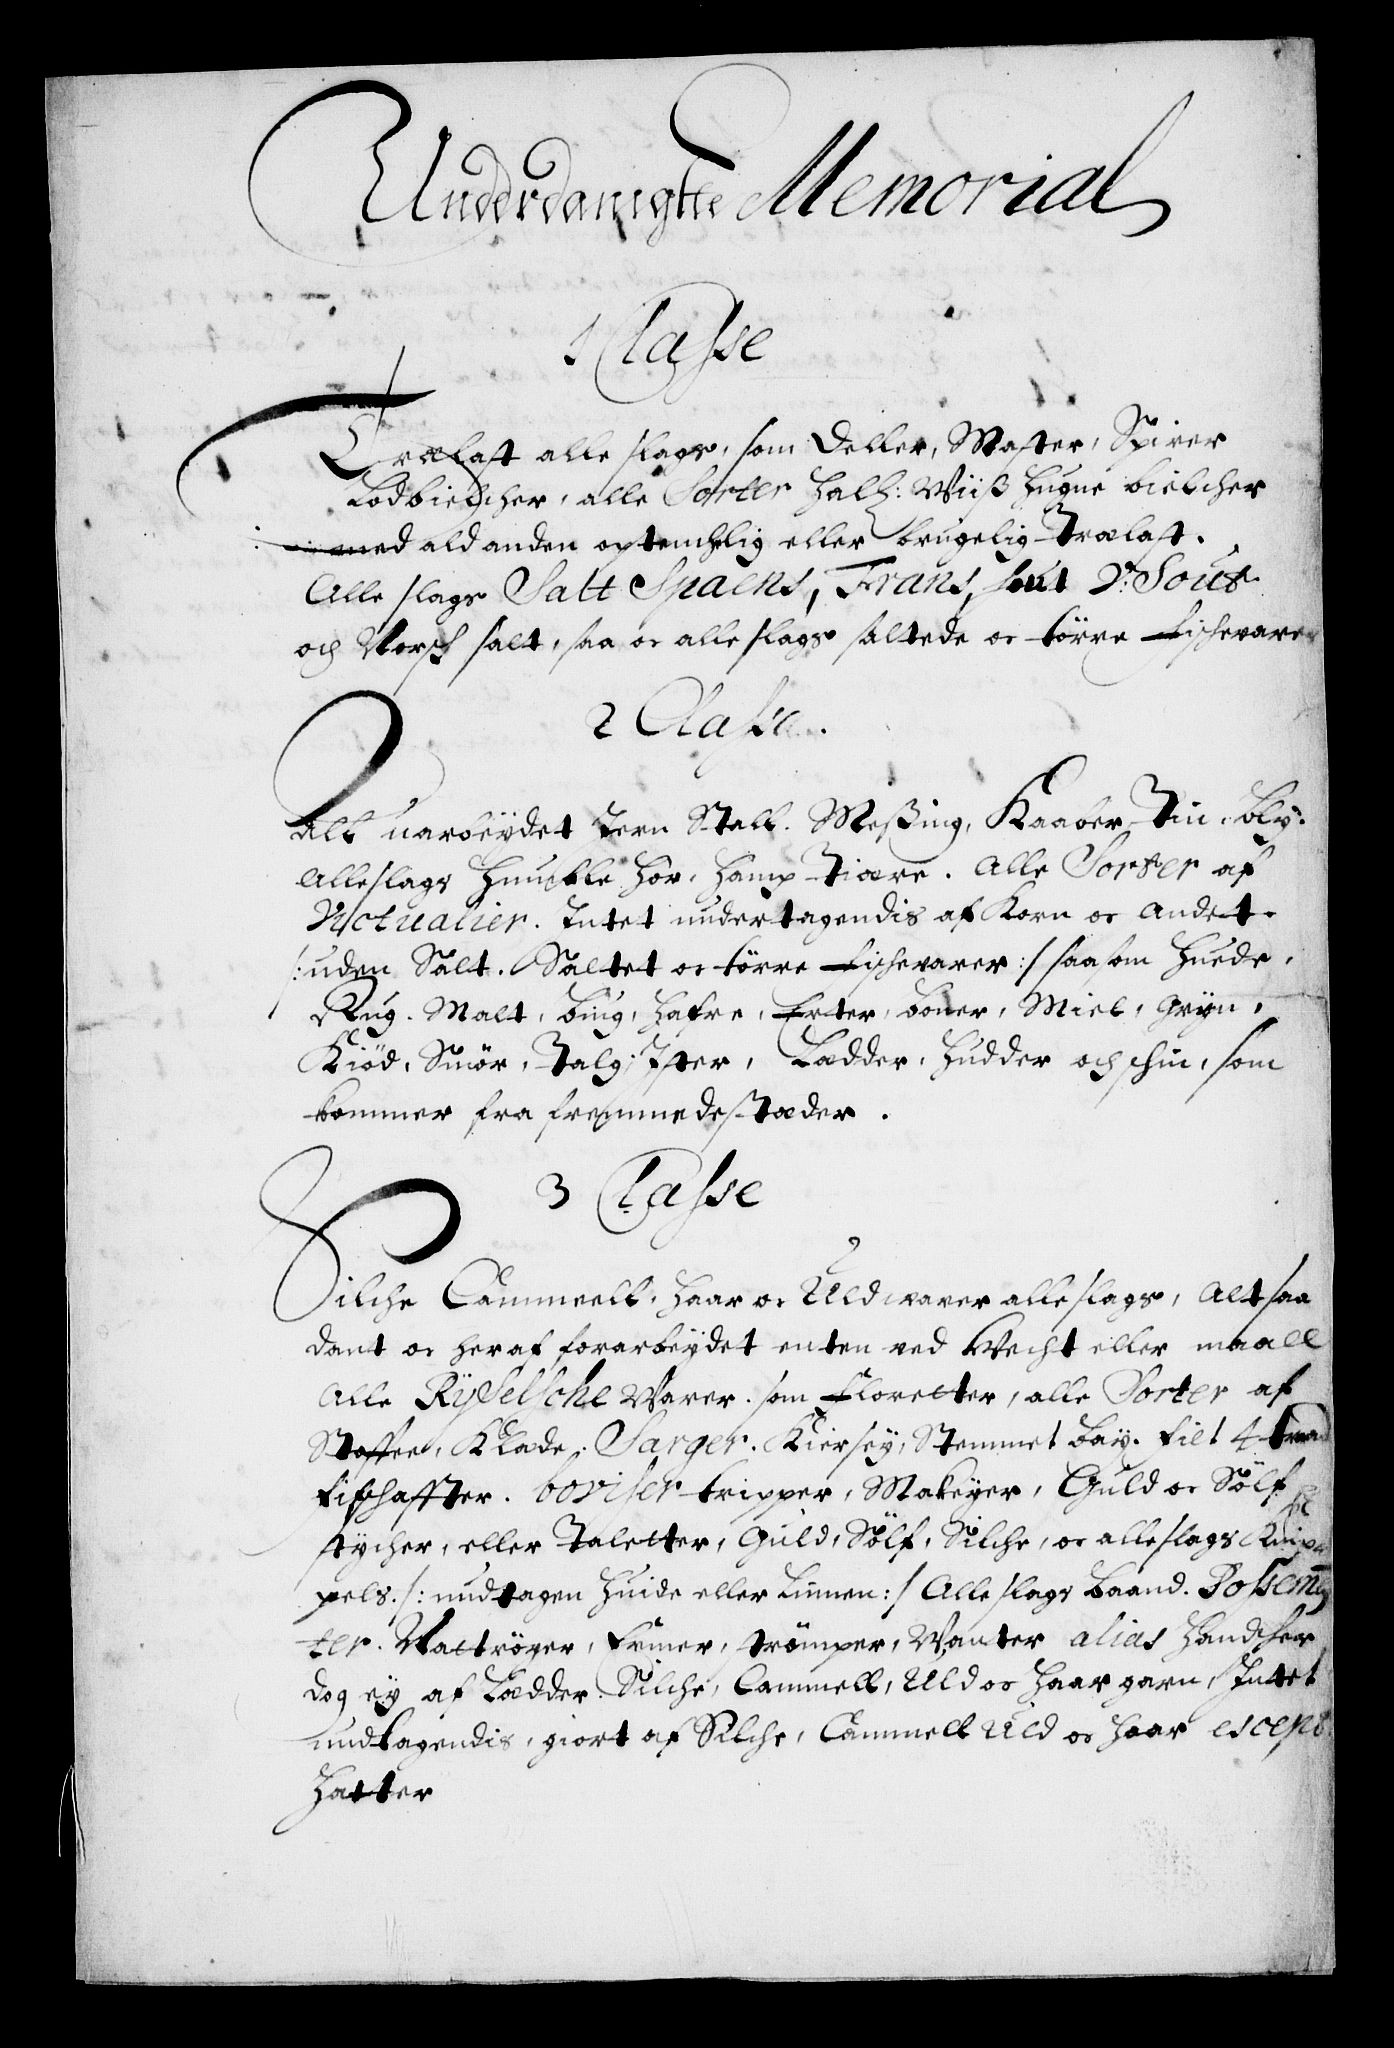 Underdanigtte Memorial
1 Classe
Trælast alle slags, som Deller, Master, Spirer
Lodbielcher, alle Sorter Half: Wiiß Hugne bielcher
med ald anden optenchelig eller brugelig Trælast.
Alle slags Salt Spaens, Frans,
och Norsk salt, saa oc alle slags saltede oc törre Fischevarer
2 Classe.
Alt uarbeydet Jern Stall. Meßing, Kaaber, Tin, bly.
Alle slags Humble Hör, Hamp Tiære. Alle Sorter af
Victualier. Intet undertagendis af Korn oc Andet
/: uden Salt. Saltet oc törre Fischevarer :/ saasom Huede,
Rug. Malt, biug, Hafre, Erter, boner, Miel, Gryn,
Kiöd, Smör, Talg, Ister, Lædder, Hudder och schin, som
kommer fra fremmede stæder.
3 Classe
Silche Cammeell, Haar oc Uld waarer alle slags, Alt saa
dant oc heraf forarbeydet enten ved Wecht eller maall
Alle Rysselsche Warer. som Floretter, alle Sorter af
Stoffer, Klæde, Sarger. Kiersey, Stemmet bay. Filt 4 traad
Fifschaffter. boriser tripper, Makeyer, Guld oc Sölf
stycher, eller Taletter, Guld, Sölf, Silche, oc alle slags Knip
pels. /: undtagen Huide eller Linnen :/ Alle slags baand. Possemen
ter. Nattröyer, Frner, strömper, Wanter alias Handscher
dog ey af Lædder. Silche, Cammell, Uld oc Haar garn, Intet
undtagendis, giort af Silche, Cammell Uld oc Haar except
Hatter